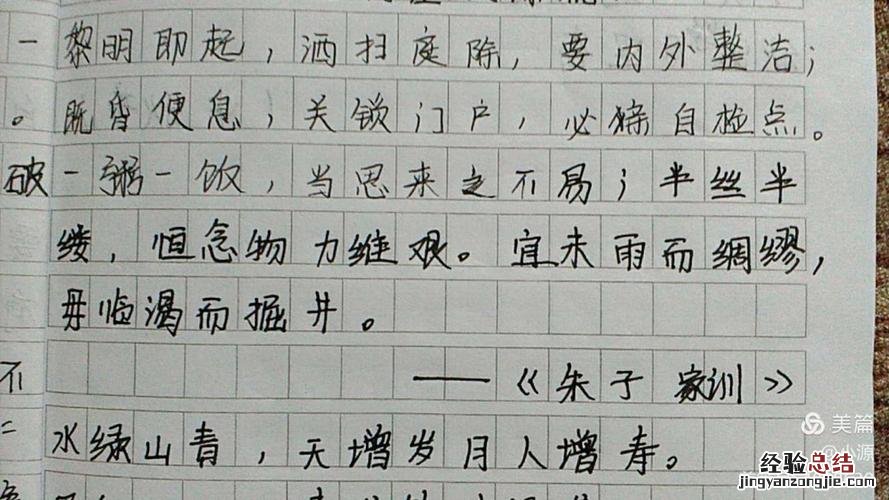 一 黎明即起，洒扫庭除，要内外整洁；
。既昏便息，关锁门户，必亲自检点。
破一粥一饭，当思来之不易；半丝半
缕，恒念物力维艰。宜未雨而绸缪，
毋临渴而掘井。
不 ——《朱子家训》
水绿山青，天增岁月人增寿。
美篇
@小源
经验总结
jingyanzongjie.com